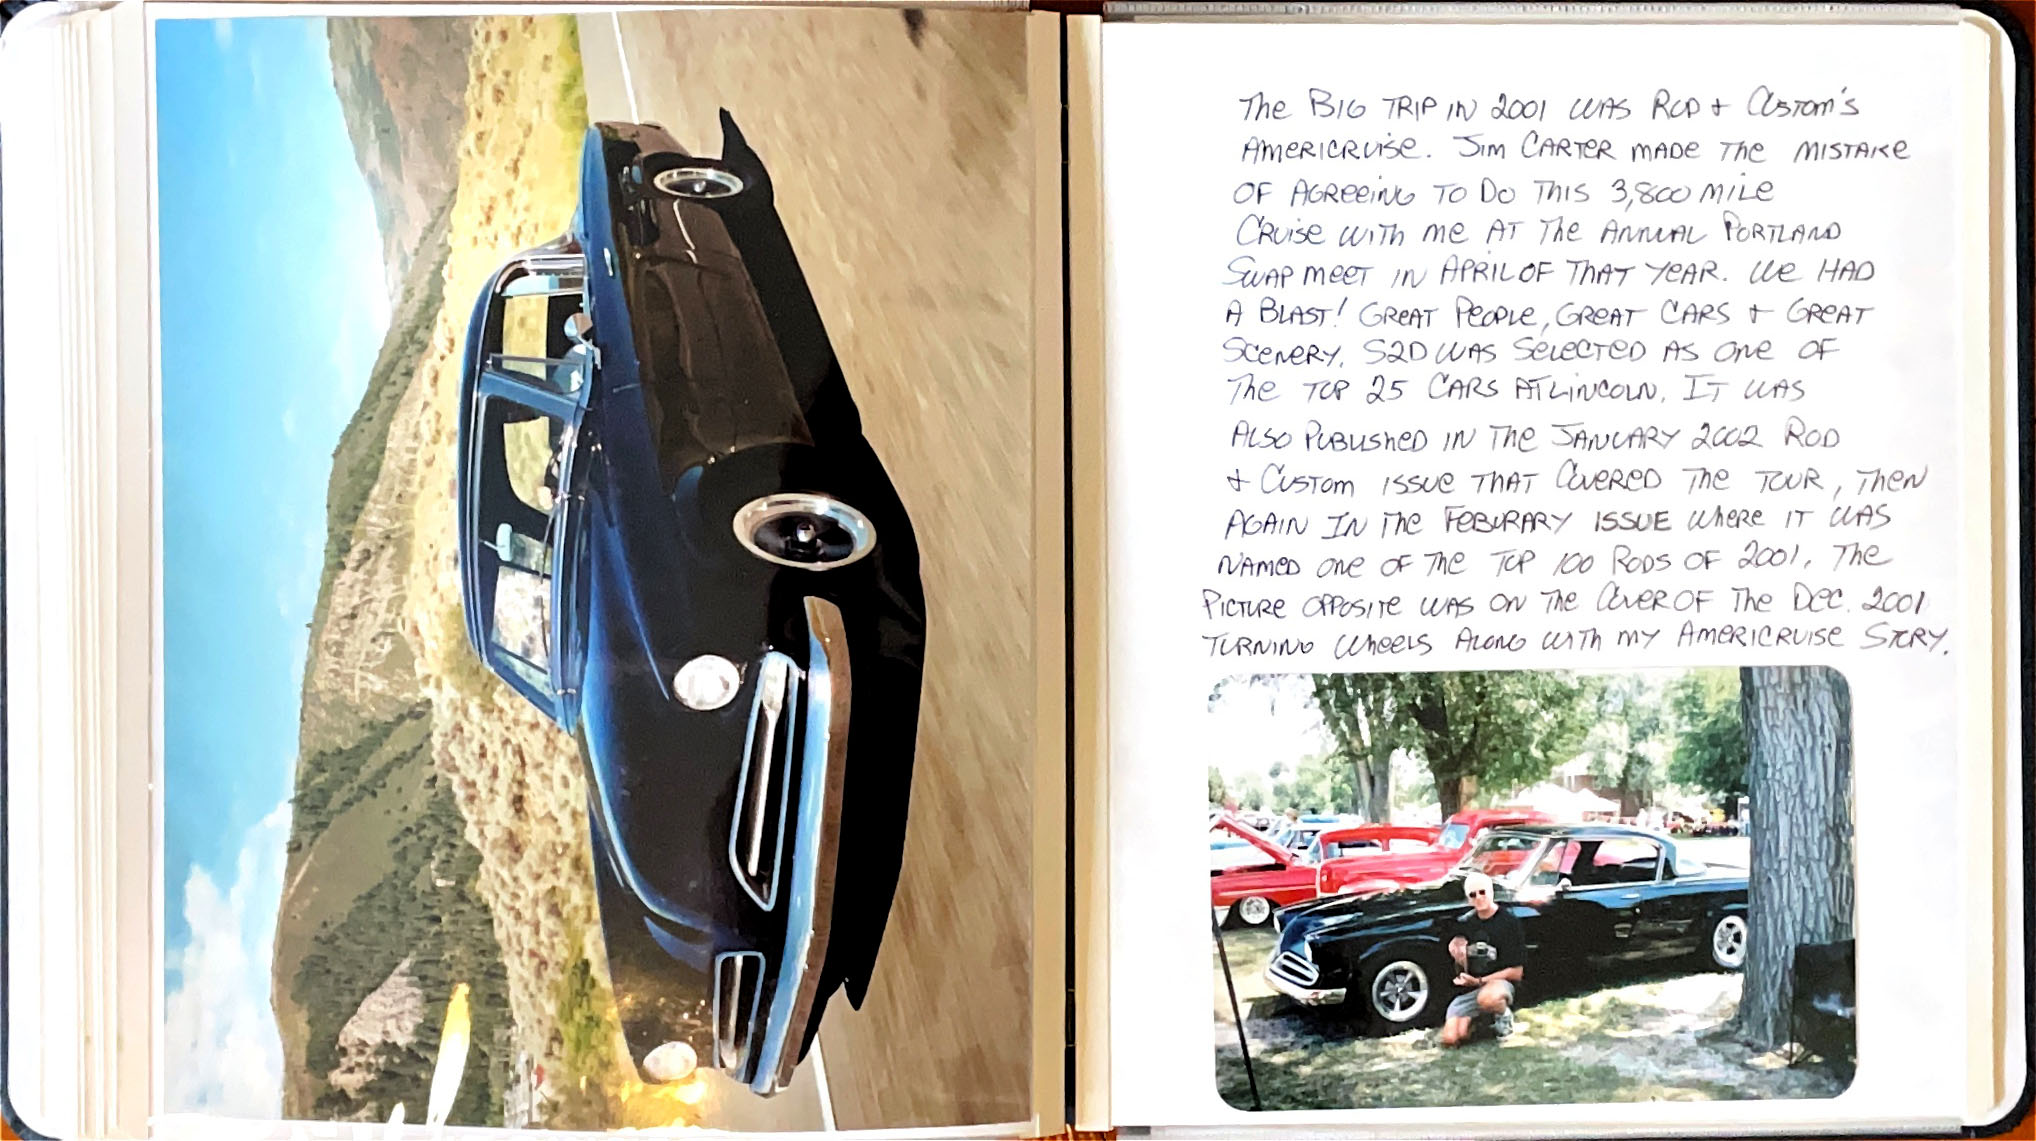 The BIG TRIP IN 2001 WAS ROD + Custom's
AMERICRUISE. JIM CARTER MADE THE MISTAKE
OF AGREEING TO DO THIS 3,800 MILE
CRUISE WITH ME AT THE ANNUAL PORTLAND
SWAP MEET IN APRIL OF THAT YEAR. WE HAD
A BLAST! GREAT PEOPLE, GREAT CARS + GREAT
SCENERY. S2D WAS SELECTED AS ONE OF
THE TOP 25 CARS AT LINCOLN. IT WAS
ALSO PUBLISHED IN THE JANUARY 2002 ROD
+ CUSTOM ISSUE THAT COVERED THE TOUR, THEN
AGAIN IN THE FEBURARY ISSUE WHERE IT WAS
NAMED ONE OF THE TOP 100 RODS OF 2001. THE
PICTURE OPPOSITE WAS ON THE COVER OF THE DEC. 2001
TURNING WHEELS ALONG WITH MY AMERICRUISE STORY.